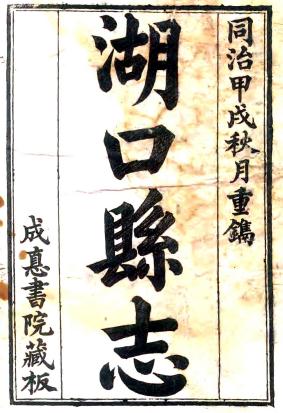 同治甲戌秋月重鐫
湖口縣志
成惪書院藏板